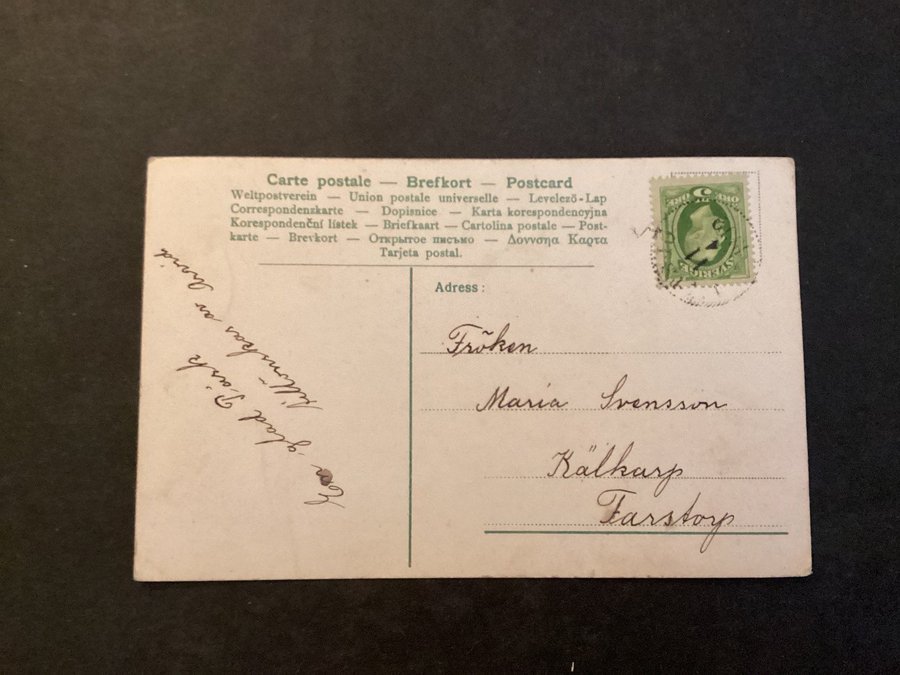 Carte postale — Brefkort — Postcard
Weltpostverein — Union postale universelle — Levelező-Lap
Correspondenzkarte — Dopisnice — Karta korespondencyjna
Korespondenční lístek — Briefkaart — Cartolina postale — Post-
karte — Brevkort — Открытое письмо — Δουνσηα Καρτα
Tarjeta postal.
En glad Påsk
tillönskas av
Adress:
Fröken
Maria Svensson
Kälkarp
Farstorp
5
SVERIGE